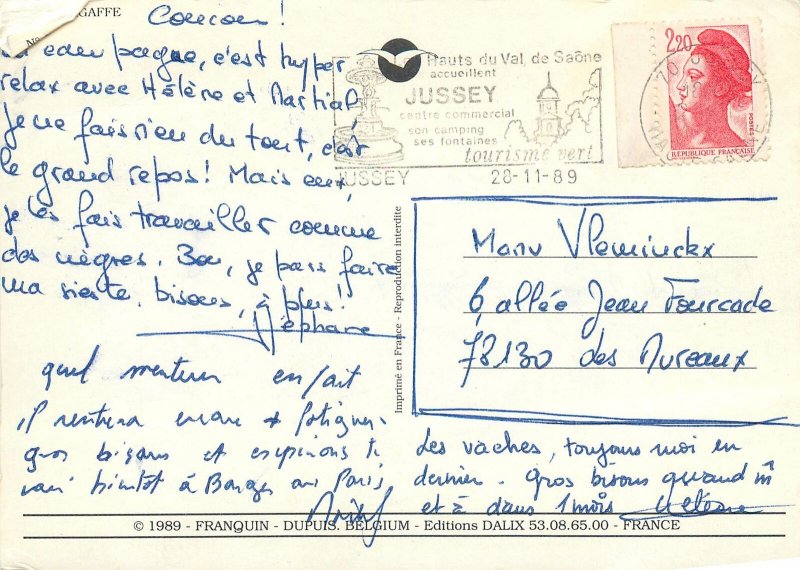 GAFFE
Coucou !
campagne, c'est hyper
relax avec Hélène et Martial
je ne fais rien du tout, car
le grand repos ! Mais eux,
je les fais travailler comme
des nègres. Bon, je pars faire
ma sieste. bisous, à plus !
Stéphane
quel menteur en fait
il rentrera encore + fatigué.
gros bisous et espérions te
voir bientôt à Barges ou Paris
Les vaches, toujours moi en
dernier. Gros bisous quand m̂
et à dans 1 mois Hélène
Hauts du Val de Saône
accueillent
JUSSEY
centre commercial
son camping
ses fontaines
tourisme vert
JUSSEY 28-11-89
2,20
POSTES
REPUBLIQUE FRANÇAISE
Manu Vleminckx
6, allée Jean Fourcade
78130 des Mureaux
Imprimé en France - Reproduction interdite
© 1989 - FRANQUIN - DUPUIS. BELGIUM - Editions DALIX 53.08.65.00 - FRANCE